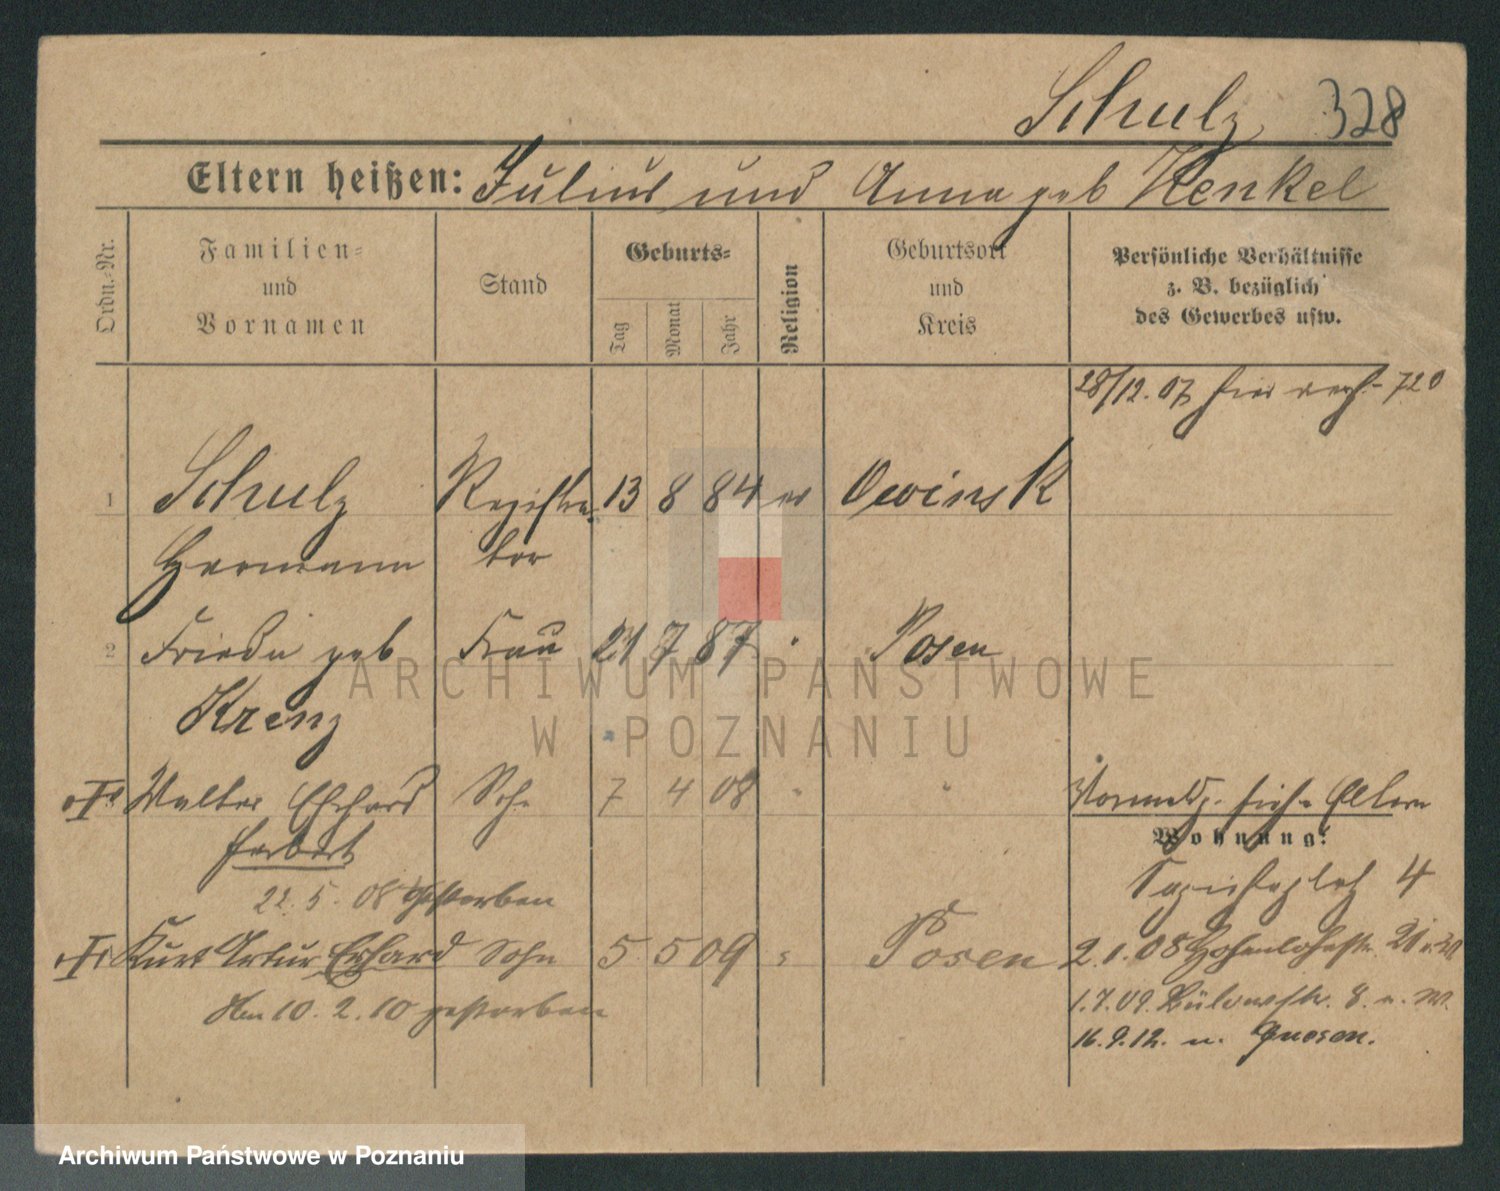 Schulz 328
Eltern heißen: Julius und Anna geb Henkel
Ordn.-Nr.
Familien-
und
Vornamen
Stand
Geburts-
Tag
Monat
Jahr
Religion
Geburtsort
und
Kreis
Persönliche Verhältnisse
z. B. bezüglich
des Gewerbes usw.
28/12. 07 hier 720
1 Schulz Registra- 13 8 84 ev Owinsk
Hermann tor
2 Frieda geb Frau 21 7 87 " Posen
Krenz
Walter Erhard Sohn 7 4 08 " " siehe Eltern
Herbert
Wohnung:
Sapiehaplatz 4
22. 5. 08 gestorben
Kurt Artur Erhard Sohn 5 5 09 " Posen 2.1.08 Hohenlohestr. 21 v. W
Am 10. 2. 10 gestorben
1.7.09. Bülowstr. 8. v. W.
16.9.12. n. Gnesen.
ARCHIWUM PAŃSTWOWE
W POZNANIU
Archiwum Państwowe w Poznaniu